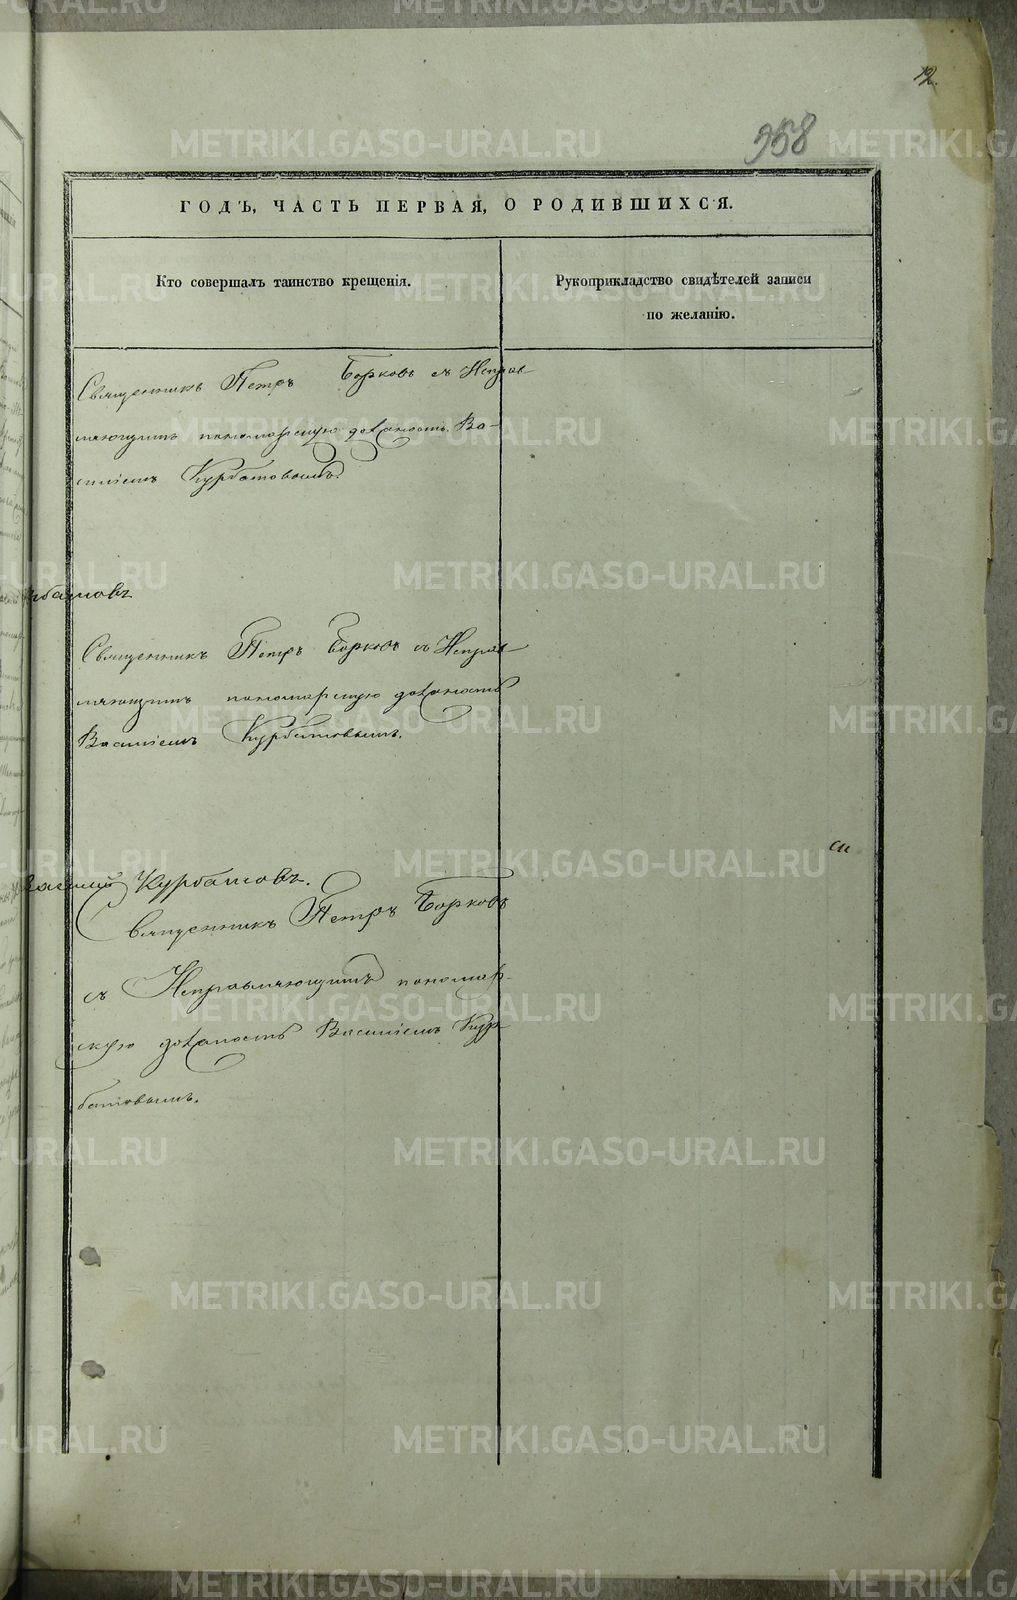 12.
958
ГОДЪ, ЧАСТЬ ПЕРВАЯ, О РОДИВШИХСЯ.
Кто совершалъ таинство крещенія.
Рукоприкладство свидѣтелей записи
по желанію.
Священникъ Петръ Борковъ съ Исправ
ляющимъ пономарскую должность Ва-
силіемъ Курбатовымъ.
рбатовъ
Священникъ Петръ Борковъ съ Исправ
ляющимъ пономарскую должность
Василіемъ Курбатовымъ.
Василій Курбатовъ.
Священникъ Петръ Борковъ
съ Исправляющимъ пономар-
скую должность Василіемъ Кур
батовымъ.
METRIKI.GASO-URAL.RU